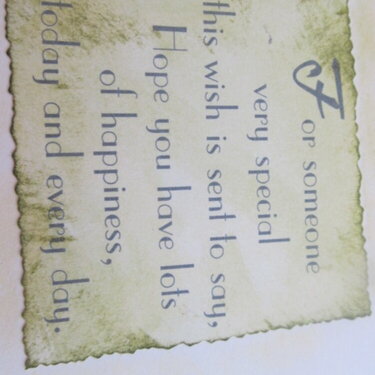 For someone
very special
this wish is sent to say,
Hope you have lots
of happiness,
today and every day.